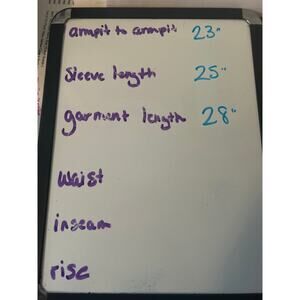 armpit to armpit 23"
Sleeve length 25"
garment length 28"
Waist
inseam
rise